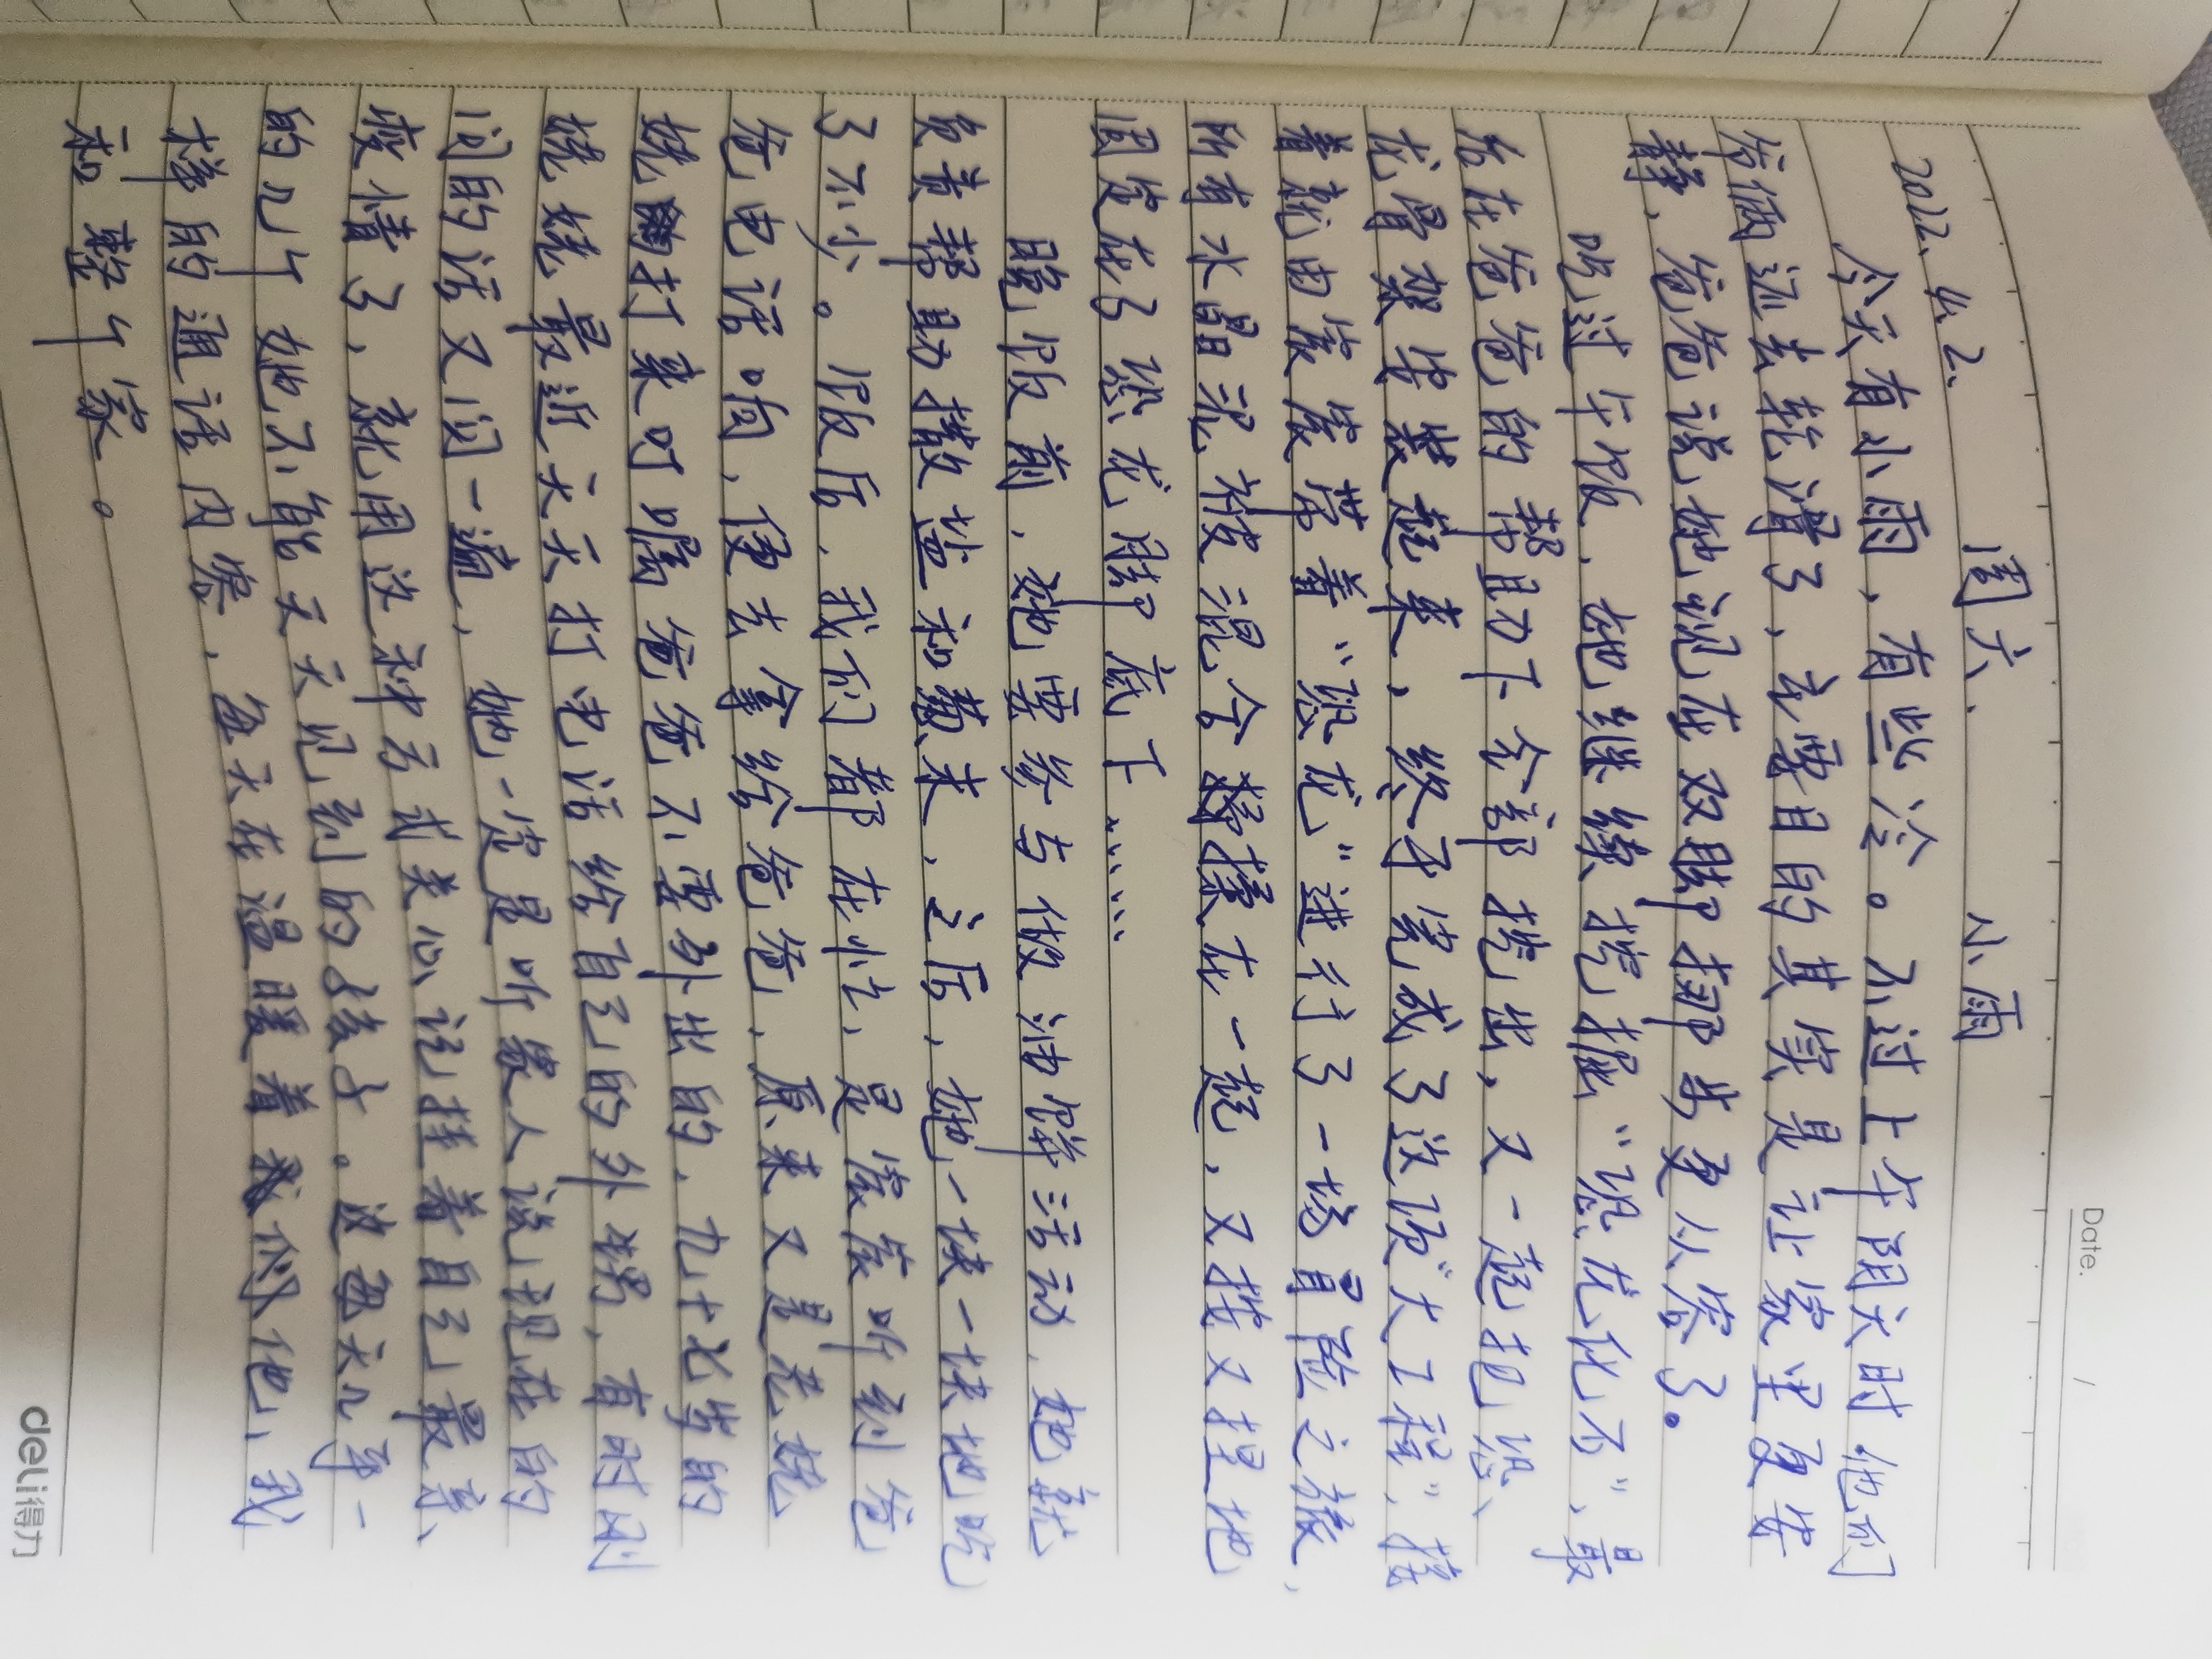 Date. /
2022.4.2. 周六. 小雨
今天有小雨，有些冷。不过上午阴天时他们
爷俩还去轮滑了，主要目的其实是让家里更安
静，爸爸说她现在双脚挪步更从容了。
吃过午饭，她继续挖掘“恐龙化石”，最
后在爸爸的帮助下全部挖出，又一起把恐
龙骨架安装起来，终于完成了这项“大工程”，接
着就由宸宸带着“恐龙”进行了一场冒险之旅，
所有水晶泥被混合揉在一起，又找又捏地
固定在了恐龙脚底下……
晚饭前，她要参与做油饼活动，她就
负责帮助撒盐和葱末，之后，她一块一块地吃
了不少。饭后，我们都在忙，是宸宸听到爸
爸电话响，便去拿给爸爸，原来又是老姥
姥打来叮嘱爸爸不要外出的，九十七岁的
姥姥最近天天打电话给自己的外甥，有时刚
问的话又问一遍，她一定是听家人说现在的
疫情了，就用这种方式关心记挂着自己最亲
的几个她不能天天见到的孩子。这每天几乎一
样的通话内容，每天在温暖着我们他，我
和整个家。
deli得力